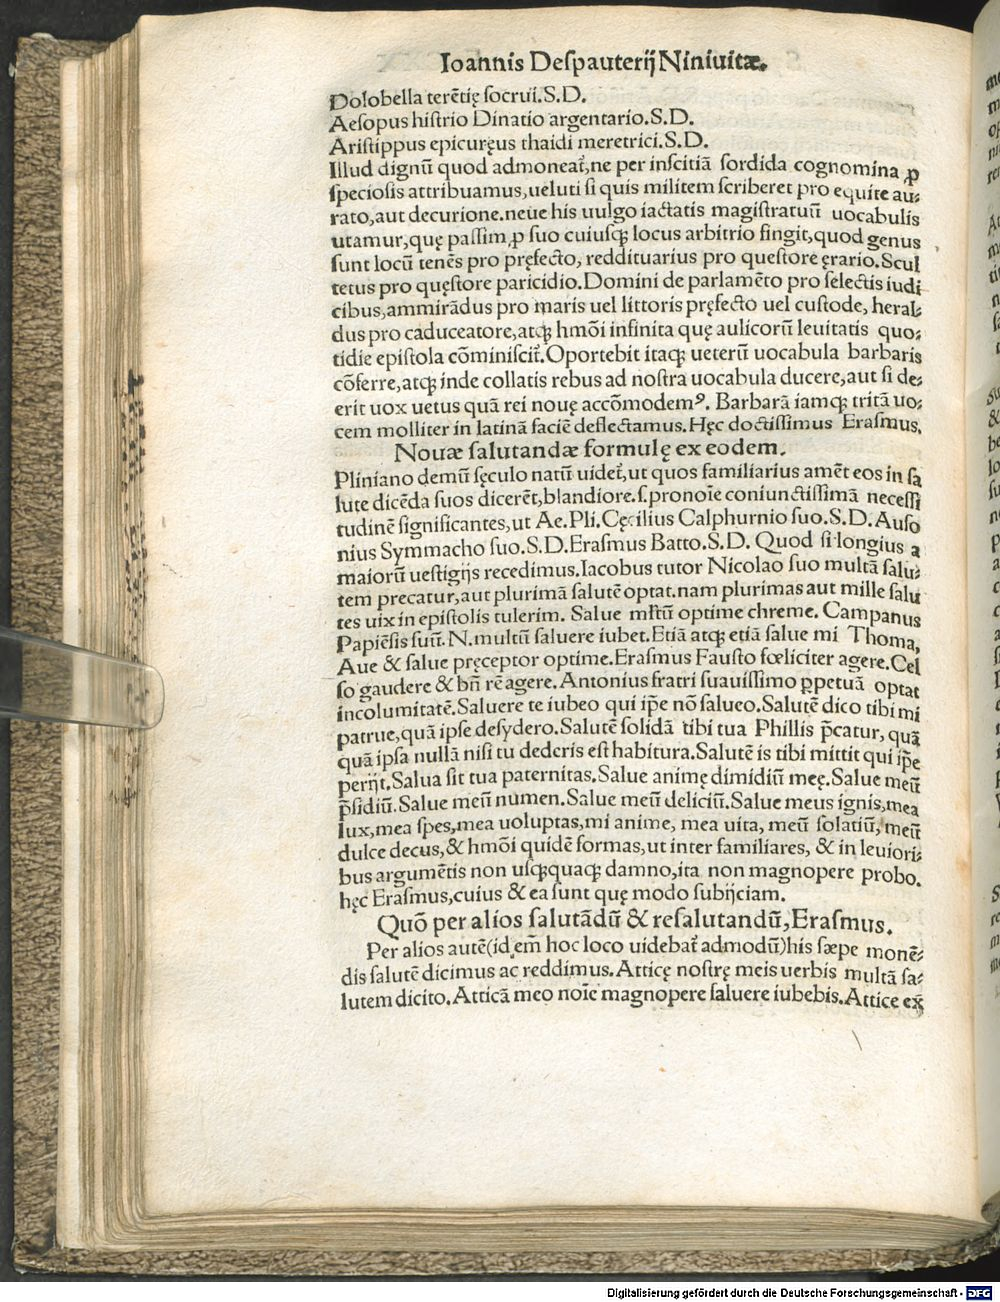 Ioannis Deſpauterij Niniuitæ.
Dolobella terẽtię ſocrui.S.D.
Aeſopus hiſtrio Dinatio argentario.S.D.
Ariſtippus epicuręus thaidi meretrici.S.D.
Illud dignũ quod admoneat᷑,ne per inſcitiã ſordida cognomina ꝓ
ſpecioſis attribuamus,ueluti ſi quis militem ſcriberet pro equite au⸗
rato,aut decurione.neue his uulgo iactatis magiſtratuũ uocabulis
utamur,quę paſſim,ꝓ ſuo cuiuſqꝫ locus arbitrio fingit,quod genus
ſunt locũ tenẽs pro pręfecto, reddituarius pro queſtore ęrario.Scul
tetus pro quęſtore paricidio.Domini de parlamẽto pro ſelectis iudi
cibus,ammirãdus pro maris uel littoris pręfecto uel cuſtode, heral⸗
dus pro caduceatore,atqꝫ hmõi infinita quę aulicorũ leuitatis quo⸗
tidie epiſtola cõminiſcit᷑.Oportebit itaqꝫ ueterũ uocabula barbaris
cõferre,atqꝫ inde collatis rebus ad noſtra uocabula ducere,aut ſi de⸗
erit uox uetus quã rei nouę accõmodemꝰ. Barbarã iamqꝫ tritã uo⸗
cem molliter in latinã faciẽ deflectamus.Hęc doctiſſimus Eraſmus.
Nouæ ſalutandæ formulę ex eodem.
Pliniano demũ ſęculo natũ uidet᷑,ut quos familiarius amẽt eos in ſa
lute dicẽda ſuos dicerẽt,blandiore.ſ.pronoĩe coniunctiſſimã neceſſi
tudinẽ ſignificantes,ut Ae.Pli.Cęcilius Calphurnio ſuo.S.D.Auſo
nius Symmacho ſuo.S.D.Eraſmus Batto.S.D. Quod ſi longius a
maiorũ ueſtigijs recedimus.Iacobus tutor Nicolao ſuo multã ſalu⸗
tem precatur,aut plurimã ſalutẽ optat.nam plurimas aut mille ſalu
tes uix in epiſtolis tulerim. Salue mĩtũ optime chreme. Campanus
Papiẽſis ſuũ.N.multũ ſaluere iubet.Etiã atqꝫ etiã ſalue mi Thoma,
Aue & ſalue pręceptor optime.Eraſmus Fauſto fœliciter agere.Cel
ſo gaudere & bñ rẽ agere.Antonius fratri ſuauiſſimo ꝑpetuã optat
incolumitatẽ.Saluere te iubeo qui ip̃e nõ ſalueo.Salutẽ dico tibi mi
patrue,quã ipſe deſydero.Salutẽ ſolidã tibi tua Phillis p̃catur, quã
quã ipſa nullã niſi tu dederis eſt habitura.Salutẽ is tibi mittit qui ip̃e
perijt.Salua ſit tua paternitas.Salue animę dimidiũ meę.Salue meũ
p̃ſidiũ.Salue meũ numen.Salue meũ deliciũ.Salue meus ignis,mea
lux,mea ſpes,mea uoluptas,mi anime, mea uita, meũ ſolatiũ, meũ
dulce decus,& hmõi quidẽ formas,ut inter familiares, & in leuiori⸗
bus argumẽtis non uſqꝫquaqꝫ damno,ita non magnopere probo.
hęc Eraſmus,cuius & ea ſunt quę modo ſubijciam.
Quõ per alios ſalutãdũ & reſalutandũ,Eraſmus.
Per alios autẽ(id em̃ hoc loco uidebat᷑ admodũ)his ſæpe monẽ⸗
dis ſalutẽ dicimus ac reddimus.Atticę noſtrę meis uerbis multã ſa⸗
lutem dicito.Atticã meo noĩe magnopere ſaluere iubebis.Attice ex̃
Digitalisierung gefördert durch die Deutsche Forschungsgemeinschaft - DFG